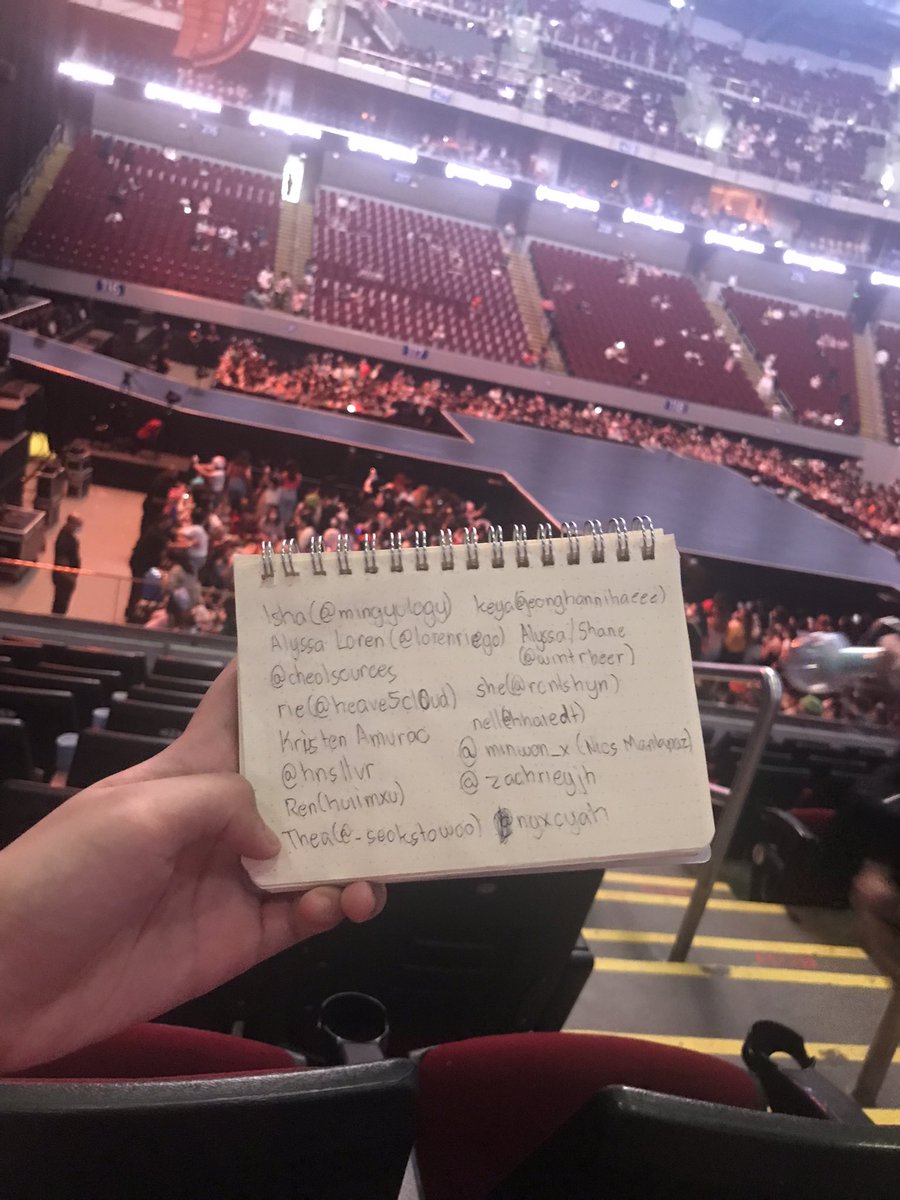 Isha(@mingyulogy)
Alyssa Loren(@lorenriego)
@cheolsources
rie(@heave5cl0ud)
Kristen Amurao
@hnsllvr
Ren(huiimxu)
Thea(@-seokstowoo)
keya(@jeonghannihaeee)
Alyssa/Shane
(@wintrbeer)
she(@rcntshyn)
@minwon_x (Nics Manlapaz)
@zachrieyjh
@nyxcyah